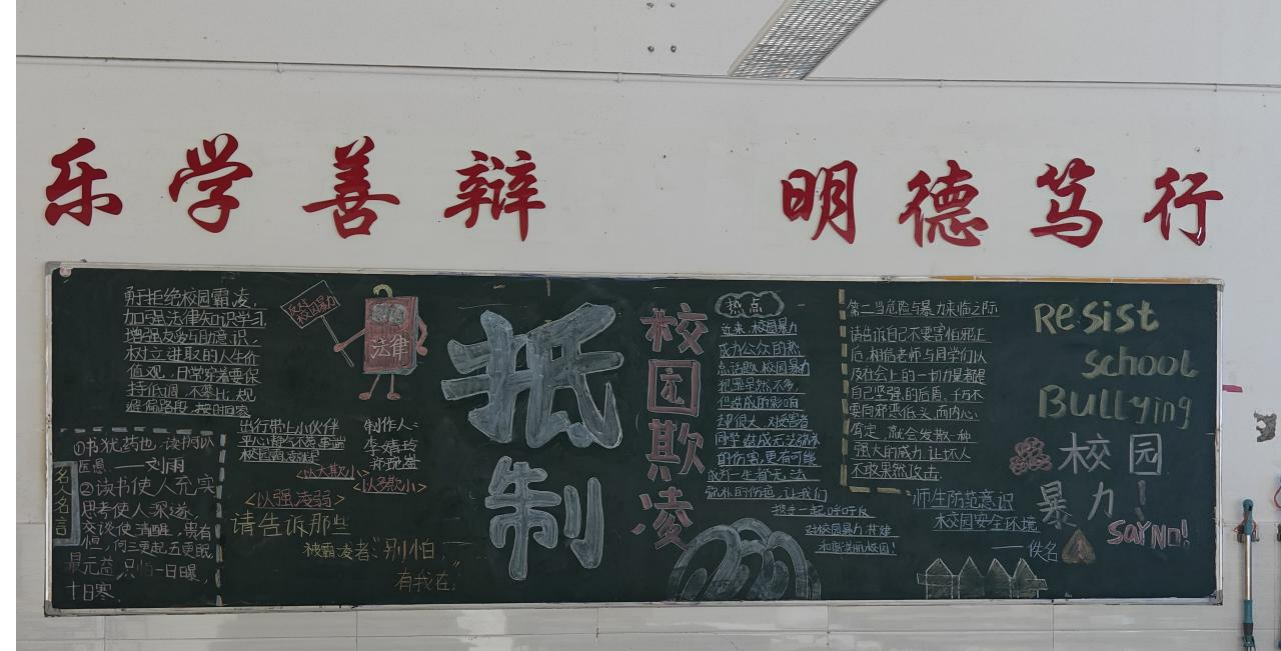 乐学善辩
明德笃行
勇于拒绝校园霸凌，
加强法律知识学习，
树立进取的人生价
值观，日常穿着要保
持低调，不攀比，规
避偏路段，按时回家
反对校园暴力
法律
出行带上小伙伴
平心静气不惹事端
校园霸凌
制作人：
<以大欺小>
<以多欺小>
<以强凌弱>
请告诉那些
被霸凌者："别怕，
有我在。"
名人名言
①书犹药也，读之可以
医愚。——刘
②读书使人充实，
思考使人深邃，
交谈使人清醒，贵有
恒，何三更起五更眠，
最无益，只怕一日曝，
十日寒。
抵制
校园欺凌
热点
近来，校园暴力
成为公众的热
点话题，校园暴力
犯罪虽然不多，
但造成的影响
却很大，对受害者
同学造成无法弥补
的伤害，更有可能
让我们
携手一起呼吁反
对校园暴力，共建
和谐
第二当危险与暴力来临之际
请告诉自己不要害怕，邪
后，相信老师与同学们以
及社会上的一切力量都是
自己坚强的后盾，千万不
要向邪恶低头，而内心
肯定，就会发散一种
强大的威力，让坏人
不敢果然攻击。
师生防范意识
校园安全环境
——佚名
Resist
school
Bullying
校园
暴力！
SAY NO!